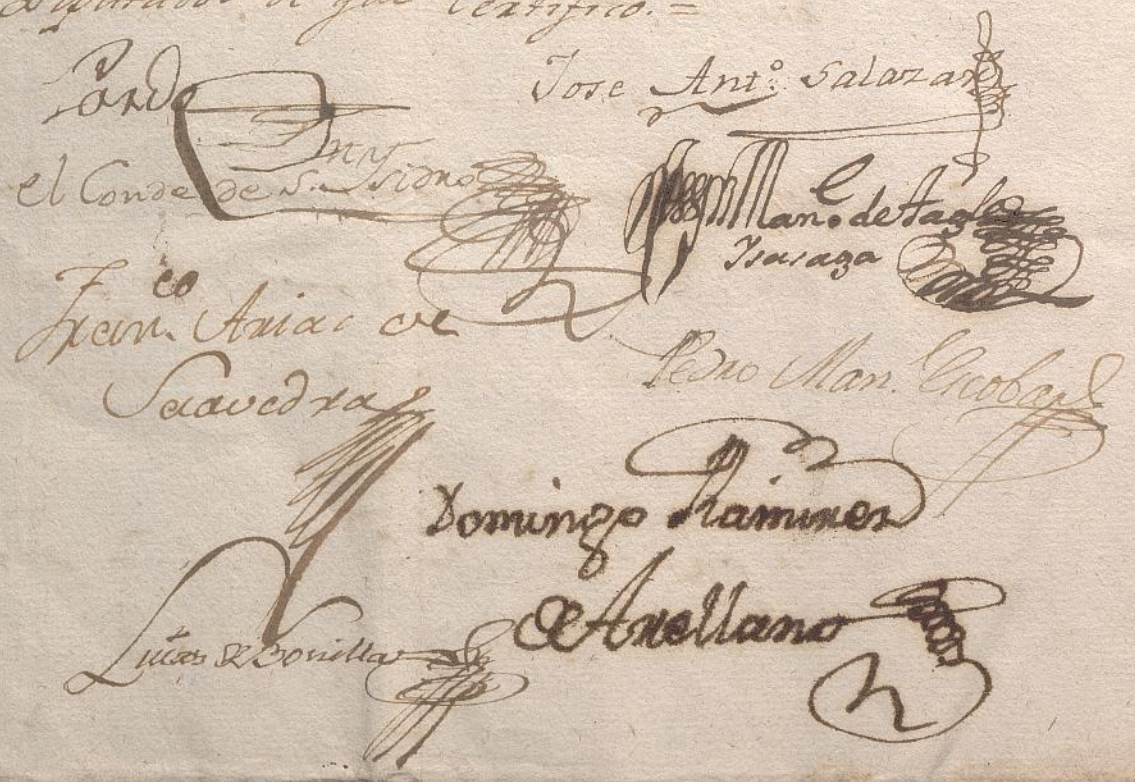 Diputados de que Certifico.=
Pardo
Jose Ant.º Salazar
el Conde de S. Isidro
Man.º de Tagle
Ysasaga
Fran.co Arias de
Saavedra
Pedro Man. Escobar
Domingo Ramires
de Arellano
Lucas de Bonilla